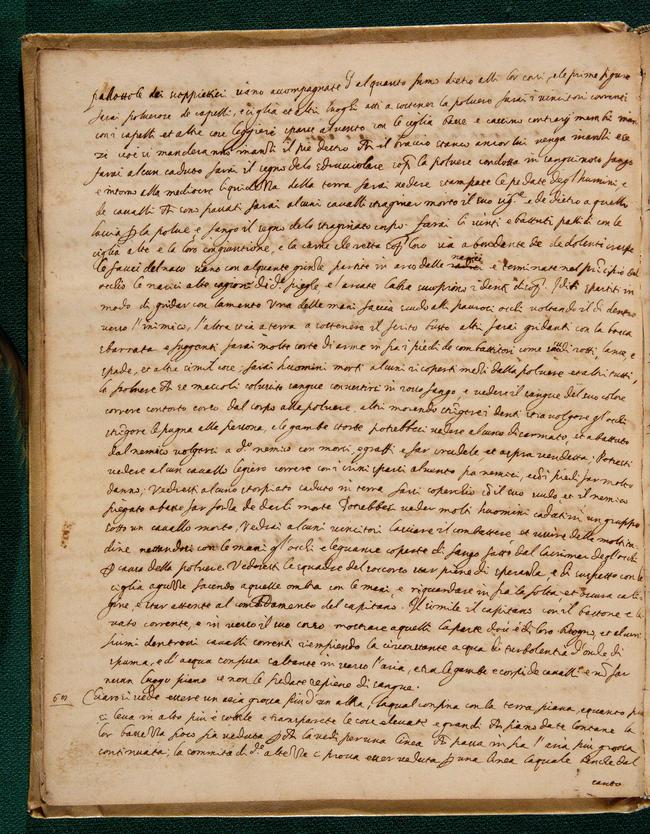 pallottole dei scoppiettieri siano accompagnate d'alquanto fumo dietro alli lor corsi, e le prime figure
farai polverose de capelli, e ciglia et altri luoghi atti a sostener la polvere farai i vincitori correnti
con i capelli et altre cose leggiere sparse al vento con le ciglia basse e caccino contrarij membri
farai alcun caduto farai il segno dello sdrucciolare la polvere condotta in sanguinoso fango
e intorno alla mediocre liquidezza della terra farai vedere stampate le pedate degl'huomini, e
de cavalli passati farai alcuni cavalli strascinar morto il suo e de dietro a quello
lascia la polve e fango il segno dello strascinato corpo. farai li vinti e battuti pallidi con le
ciglia alte e la loro congiuntione, e la carne che resta loro sia abondante de dolenti crespe
le fauci del naso siano con alquante grinde partite in arco dalle narici e terminate nel principio del
occhio le narici alte cagioni di dette pieghe, e l'arcate labra scuoprino i denti spartiti in
modo di gridar con lamento Una delle mani faccia scudo alli paurosi occhi voltando il di dentro
verso l'inimico, l'altra stia a terra a sostenere il ferito busto altri farai gridanti con la bocca
sbarrata e fuggenti farai molte sorte di arme in fra i piedi de combattitori come scudi rotti, lance, e
spade, et altre simil cose; farai huomini morti alcuni ricoperti mezi dalla polvere et altri tutti,
la polvere che se mescoli coll'uscito sangue convertirse in rosso fango e vedere il sangue del suo colore
correre con torto corso dal corpo alla polvere, altri morendo stringere i denti stravolgere gl'occhi
stringere le pugna alla persona, e le gambe storte potrebbesi vedere alcuno disarmato, et abbattuto
dal nemico volgersi a detto nemico con morsi, e graffi e far crudele et aspra vendetta; Potresti
vedere alcun cavallo legiero correre con i crini sparsi al vento fra nemici, e co i piedi far molto
danno; Vedresti alcuno storpiato caduto in terra farsi coperchio col il suo scudo et il nemico
piegato a basso far forza de darli morte Potrebbesi veder molti huomini caduti in un gruppo
sotto un cavallo morto, Vedrai alcuni vincitori lasciare il combattere et uscire della moltitu
dine nettandosi con le mani gl'occhi e le guance coperte di fango fatto dal lacrimar degl'occhi
causa della polvere Vederesti le squadre del soccorso star piene di speranza, e di suspetto con le
ciglia aguzze facendo a quelle ombra con le mani, e riguardare in fra la folta et oscura cali
gine, e stare attente al comandamento del capitano. Et simile il capitano con il bastone e le
vato corrente, e in verso il suo corso mostrare a quelli la parte dov'è di loro bisogno, et alcun
fiumi dentrovi cavalli correnti riempiendo la circonstante acqua di turbolentia d'onde di
spuma, e d'acqua confusa saltante in verso l'aria, e tra le gambe e corpi de cavalli e non far
nessun luogo piano se non le pedate ripiene di sangue.
Chiaro si vede essere un'aria grossa più d'un altra, la qual confina con la terra piana, e quanto più
si leva in alto più è sottile e transparente le cose elevate e grandi che fian da te lontane la
lor bassezza poco fia veduta perchè la vedi per una linea che passa in fra l'aria più grossa
continuata; la sommità di dette altezze si prova esser veduta per una linea la quale benche dal
canto